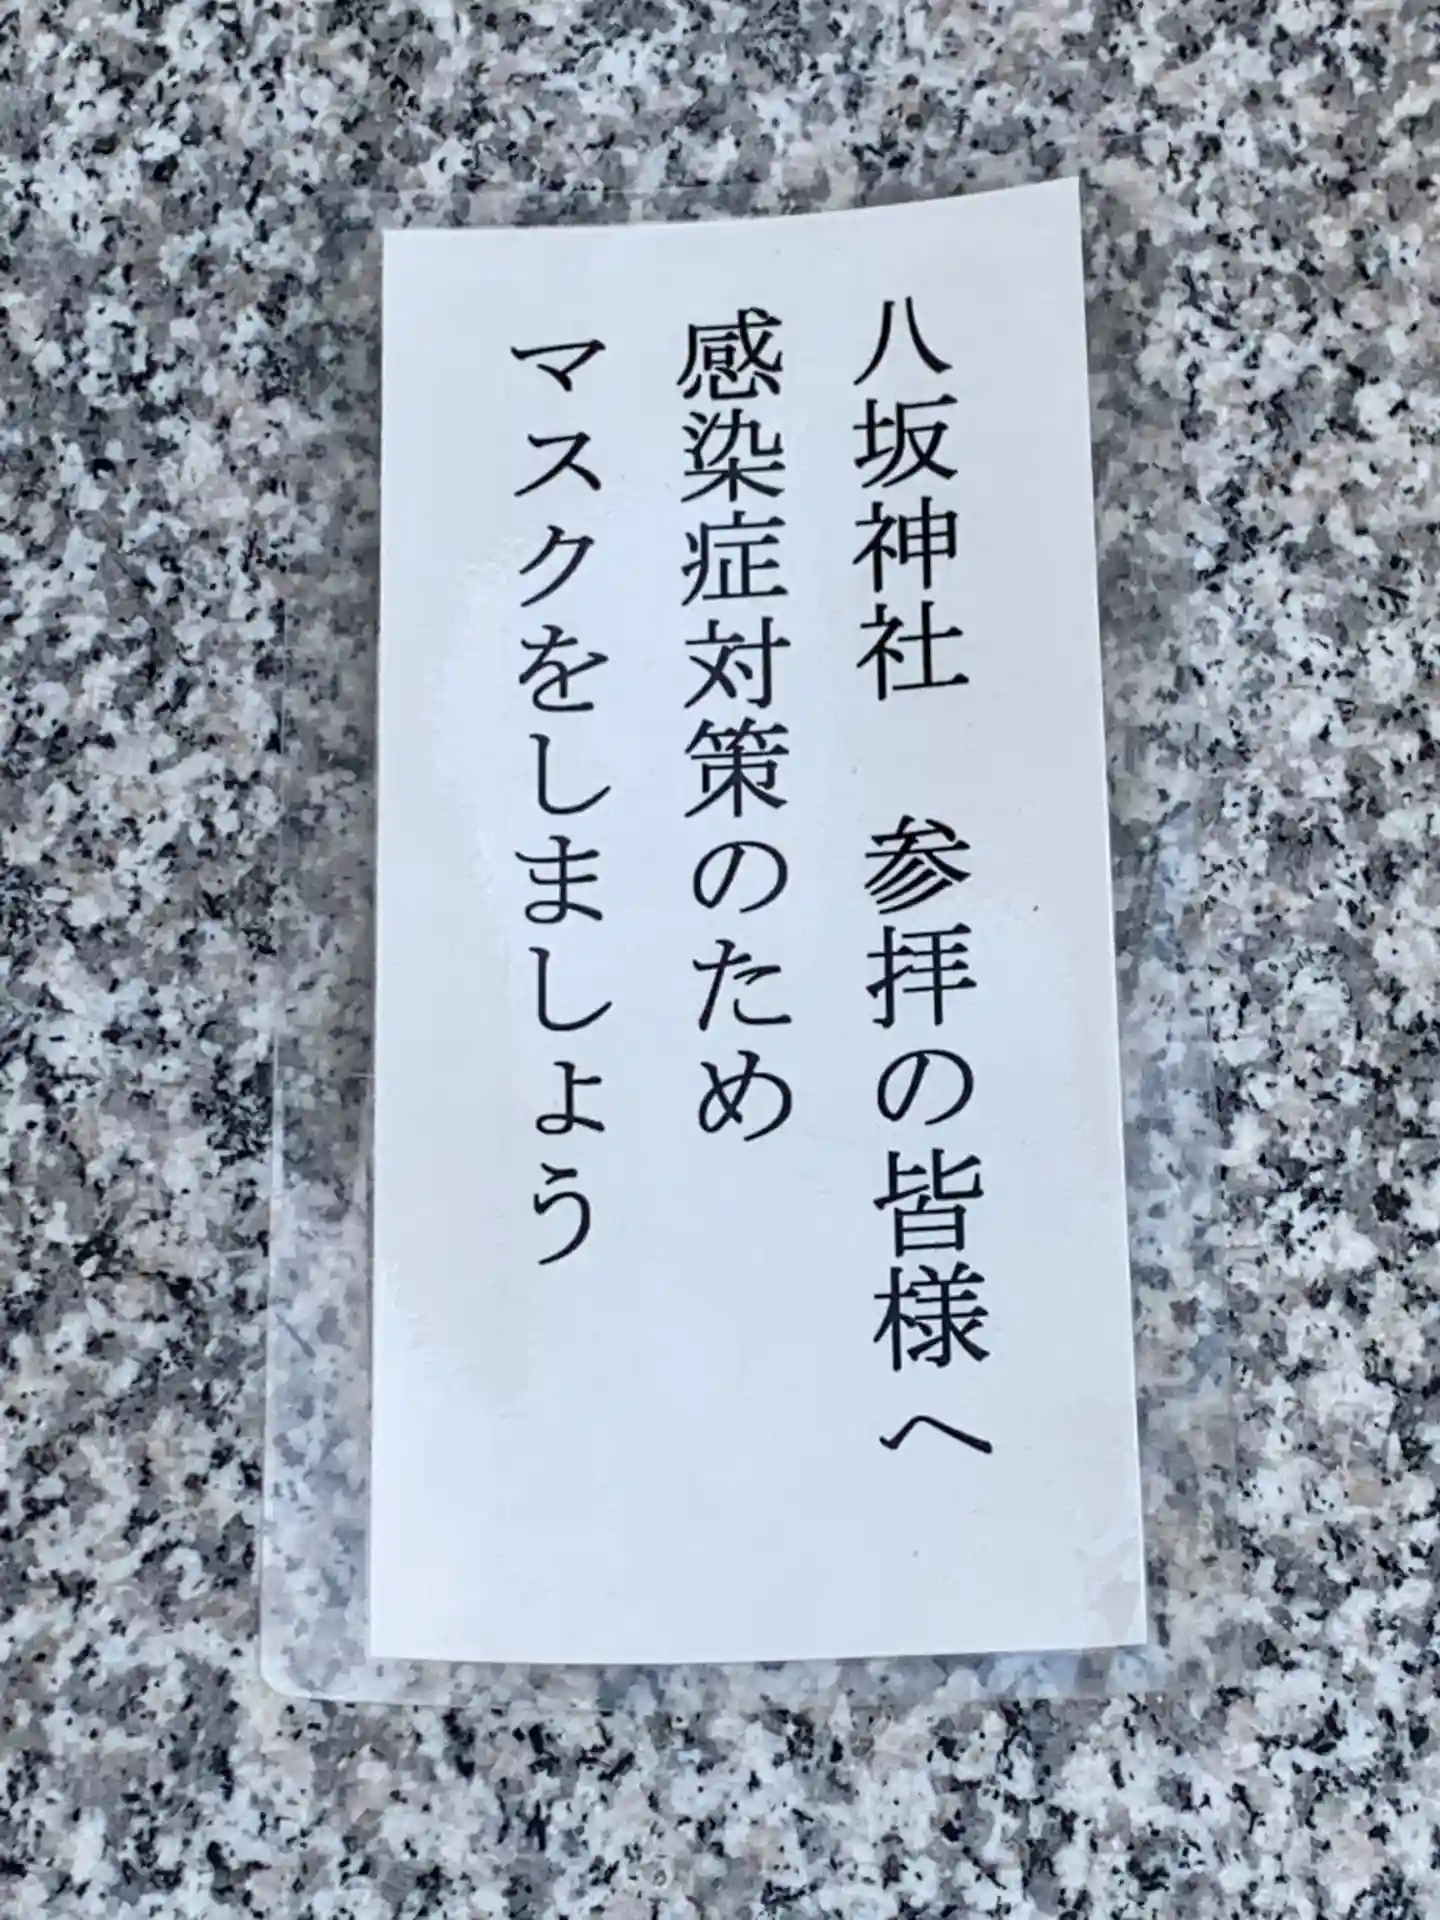 八坂神社　参拝の皆様へ
感染症対策のため
マスクをしましょう